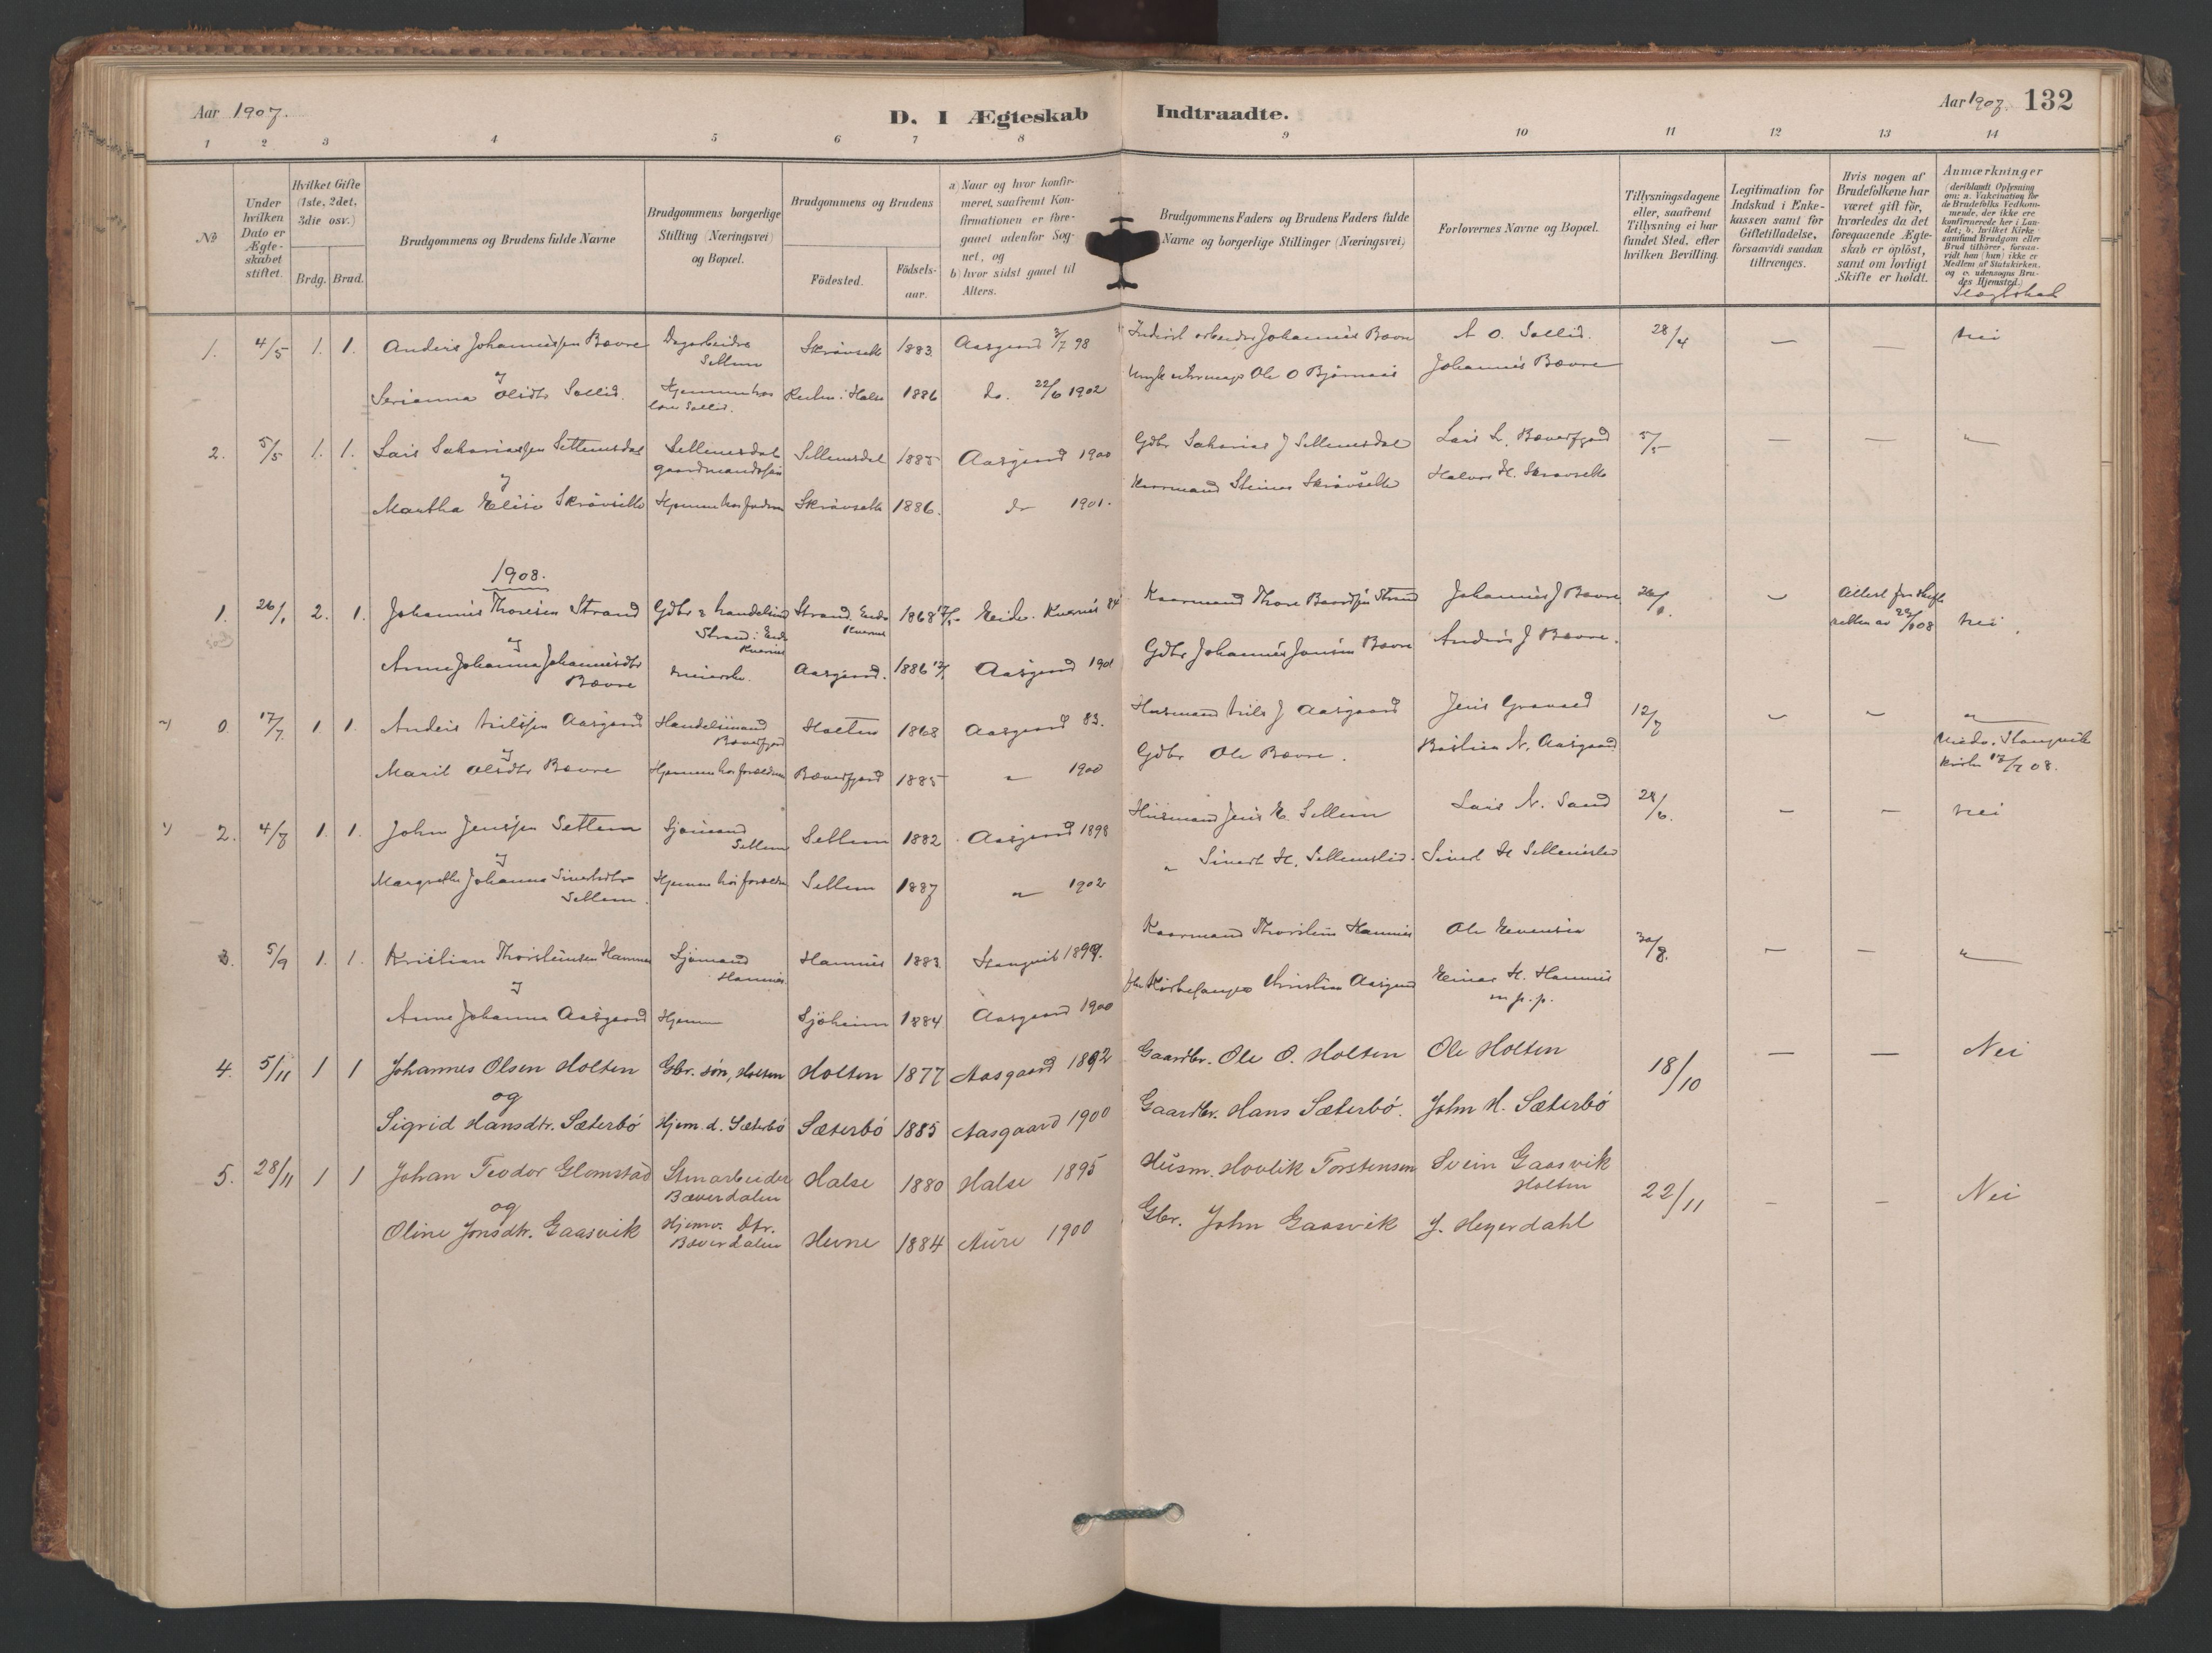 Aar 1907.
D. I Ægteskab Indtraadte.
Aar 1907. 132
1 2 3 4 5 6 7 8 9 10 11 12 13 14
No
Under hvilken Dato er Ægteskabet stiftet.
Hvilket Gifte (1ste, 2det, 3die osv.)
Brdg. Brud.
Brudgommens og Brudens fulde Navne
Brudgommens borgerlige Stilling (Næringsvei) og Bopæl.
Brudgommens og Brudens
Födested.
Födselsaar.
a) Naar og hvor konfirmeret, saafremt Konfirmationen er foregaaet udenfor Sognet, og
b) hvor sidst gaaet til Alters.
Brudgommens Faders og Brudens Faders fulde Navne og borgerlige Stillinger (Næringsvei)
Forlovernes Navne og Bopæl.
Tillysningsdagene eller, saafremt Tillysning ei har fundet Sted, efter hvilken Bevilling.
Legitimation for Indskud i Enkekassen samt for Giftetilladelse, forsaavidt saadan tiltrænges.
Hvis nogen af Brudefolkene har været gift för, hvorledes da det foregaaende Ægteskab er oplöst, samt om lovligt Skifte er holdt.
Anmærkninger
(deriblandt Oplysning om: a. Vakcination for de Brudefolks Vedkommende, der ikke ere konfirmerede her i Landet; b. hvilket Kirkesamfund Brudgom eller Brud tilhörer, forsaavidt han (hun) ikke er Medlem af Statskirken, og c. udensogns Brudes Hjemsted.)
Slægtskab
1. 4/5 1. 1. Anders Johannesen Bævre Dagarbeider Settem Skrövseth 1883. Aasgaard 3/7 98 Johannes Bævre A O. Sollid. 28/4 — — nei
Serianna Olsdtr Sollid. Hjemme hos Sollid. Halse 1886 do. 22/6 1902 Ole O Bjørnaas Johannes Bævre
2. 5/5 1. 1. Lars Sakariassen Settemsdal Settemsdal gaardmandssøn Settemsdal 1885 Aasgaard 1900 Gdbr Sakarias J Settemsdal Lars L. Bæverfjord 5/5 — — "
Martha Elise Skrövseth Hjemme hos faderen Skrövseth 1886. do 1901. Kaarmand Steiner Skrövseth Halvor H. Skrövseth
1908.
1. 26/1 2. 1. Johannes Thoresen Strand Gdbr & handelsmd Strand i Eide Kvernes Strand Eide Kvernes 1868 Eide. Kvernes 84 Kaarmand Thore Baardsen Strand Johannes J Bævre 26/1. — Attest fra skifteretten av 22/1 08 nei
Anne Johanna Johannesdtr Bævre meierske. Aasgaard. 1886 Aasgaard 1901 Gdbr Johannes Jonsen Bævre Anders J Bævre.
0. 17/7. 1. 1. Anders Nilssen Aasgaard Handelsmand Bæverfjord Holten 1868 Aasgaard 83. Husmand Nils J Aasgaard Jens Gravaas 12/7 — — "
Marit Olsdtr Bævre Hjemme hos forældrene Bæverfjord 1885 " 1900 Gdbr Ole Bævre. Bastian N. Aasgaard Viede i Stangvik kirke 17/7 08.
2. 4/7 1. 1. John Jenssen Settem Sjömand Settem Settem 1882 Aasgaard 1898 Husmand Jens E. Settem Lars N. Sand 28/6. — — nei
Margrethe Johanna Sivertsdtr Settem. Hjemme hos forældre Settem 1887 " 1902 " Sivert H. Settemslid. Sivert H Settemslid
3. 5/9 1. 1. Kristian Thorsteinsen Hamnes Sjömand Hamnes. Hamnes 1883 Stangvik 1899. Kaarmand Thorstein Hamnes Ole Evensen 30/8. — — "
Anne Johanna Aasgaard Hjemme Sjöheim 1884 Aasgaard 1900 Kirkesanger Christian Aasgaard Einar H. Hamnes m. p. p.
4. 5/11 1 1 Johannes Olsen Holten Gbr. søn, Holten Holten 1877 Aasgaard 1892 Gaardbr. Ole O. Holten Ole Holten 18/10 — — Nei
og
Sigrid Hansdtr. Sæterbö Hjem. d. Sæterbö Sæterbö 1885 Aasgaard 1900 Gaardbr. Hans Sæterbö. John H. Sæterbö
5. 28/11 1 1 Johan Teodor Glomstad Stenarbeider Bæverdalen Halse 1880 Halse 1895 Husm. Hovlik Torstensen Svein Gaasvik Holten 22/11 - - Nei
og
Oline Jonsdtr. Gaasvik Hjemv. Dtr. Bæverdalen Hevne 1884 Aure 1900 Gbr. John Gaasvik J. Heyerdahl